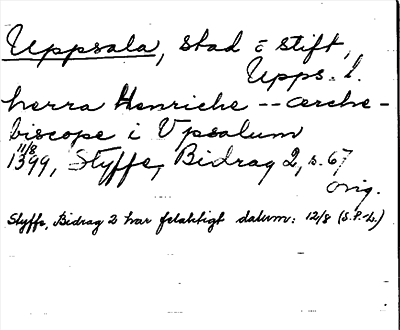 Uppsala, stad o stift,
Upps. l.
herra Henriche -- ærche-
biscope i Vpsalum
11/8
1399, Styffe, Bidrag 2, s. 67
orig.
Styffe, Bidrag 2 har felaktigt datum: 12/8 (S.P.-L.)